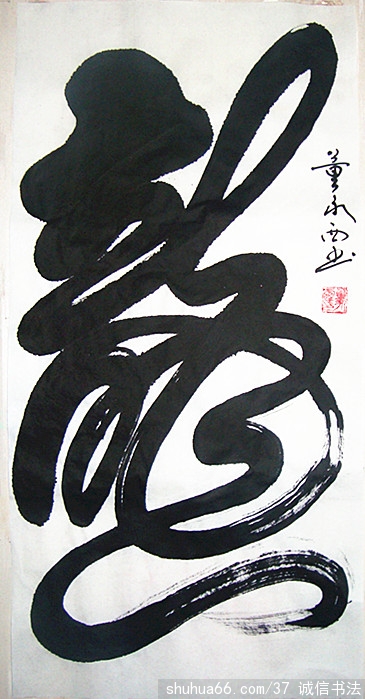 龍
董永西书
shuhua66.com/37 诚信书法